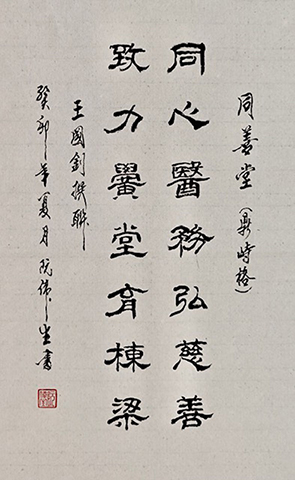 同善堂（鼎峙格）
同心醫務弘慈善
致力黌堂育棟梁
王國釗撰聯
癸卯年夏月阮偉生書